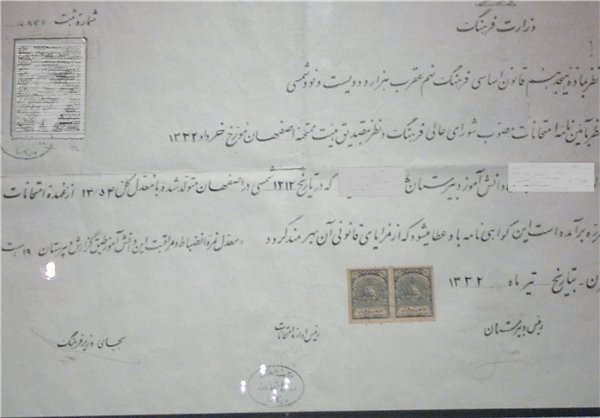 وزارت فرهنگ
شمارهٔ ثبت
نظر بمادهٔ هیجدهم قانون اساسی فرهنگ نهم عقرب هزار و دویست و نود شمسی
نظر بآئین نامه امتحانات مصوب شورای عالی فرهنگ و نظر بتصدیق هیئت ممتحنهٔ اصفهان مورخ خرداد ۱۳۲۲
دانش آموز دبیرستان که در تاریخ ۱۲۱۲ شمسی در اصفهان متولد شده با معدل کل ۱۳/۵۴ از عهدهٔ امتحانات
برآمده است این گواهی نامه باو عطا میشود که از مزایای قانونی آن بهره مند گردد، معدل نمره انضباط و مراقبت این دانش آموز طبق گزارش دبیرستان ۱۹ است
بتاریخ تیر ماه ۱۳۲۲
رئیس دبیرستان
رئیس اداره امتحانات
بجای وزیر فرهنگ